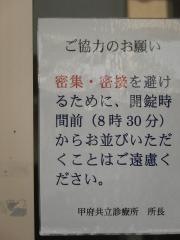 ご協力のお願い
密集・密接を避け
るために、開錠時
間前（8時30分）
からお並びいただ
くことはご遠慮く
ださい。
甲府共立診療所　所長